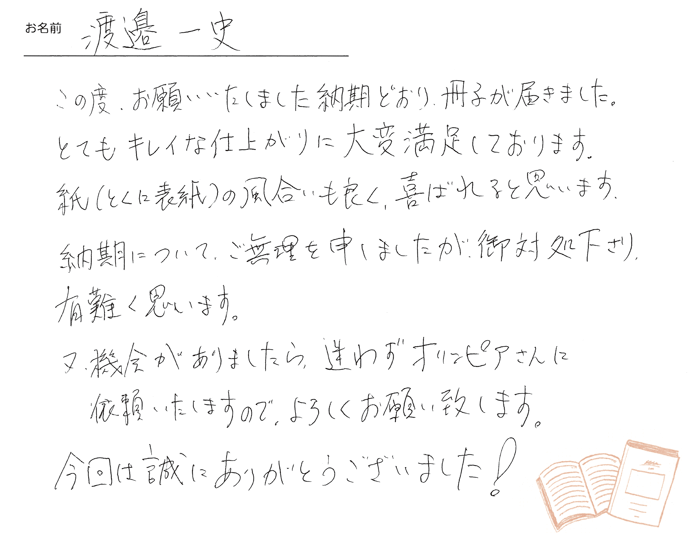 お名前 渡邉 一史
この度、お願いいたしました納期どおり、冊子が届きました。
とてもキレイな仕上がりに大変満足しております。
紙(とくに表紙)の風合いも良く、喜ばれると思います。
納期について、ご無理を申しましたが、御対処下さり、
有難く思います。
又、機会がありましたら、迷わずオリンピアさんに
依頼いたしますので、よろしくお願い致します。
今回は誠にありがとうございました!